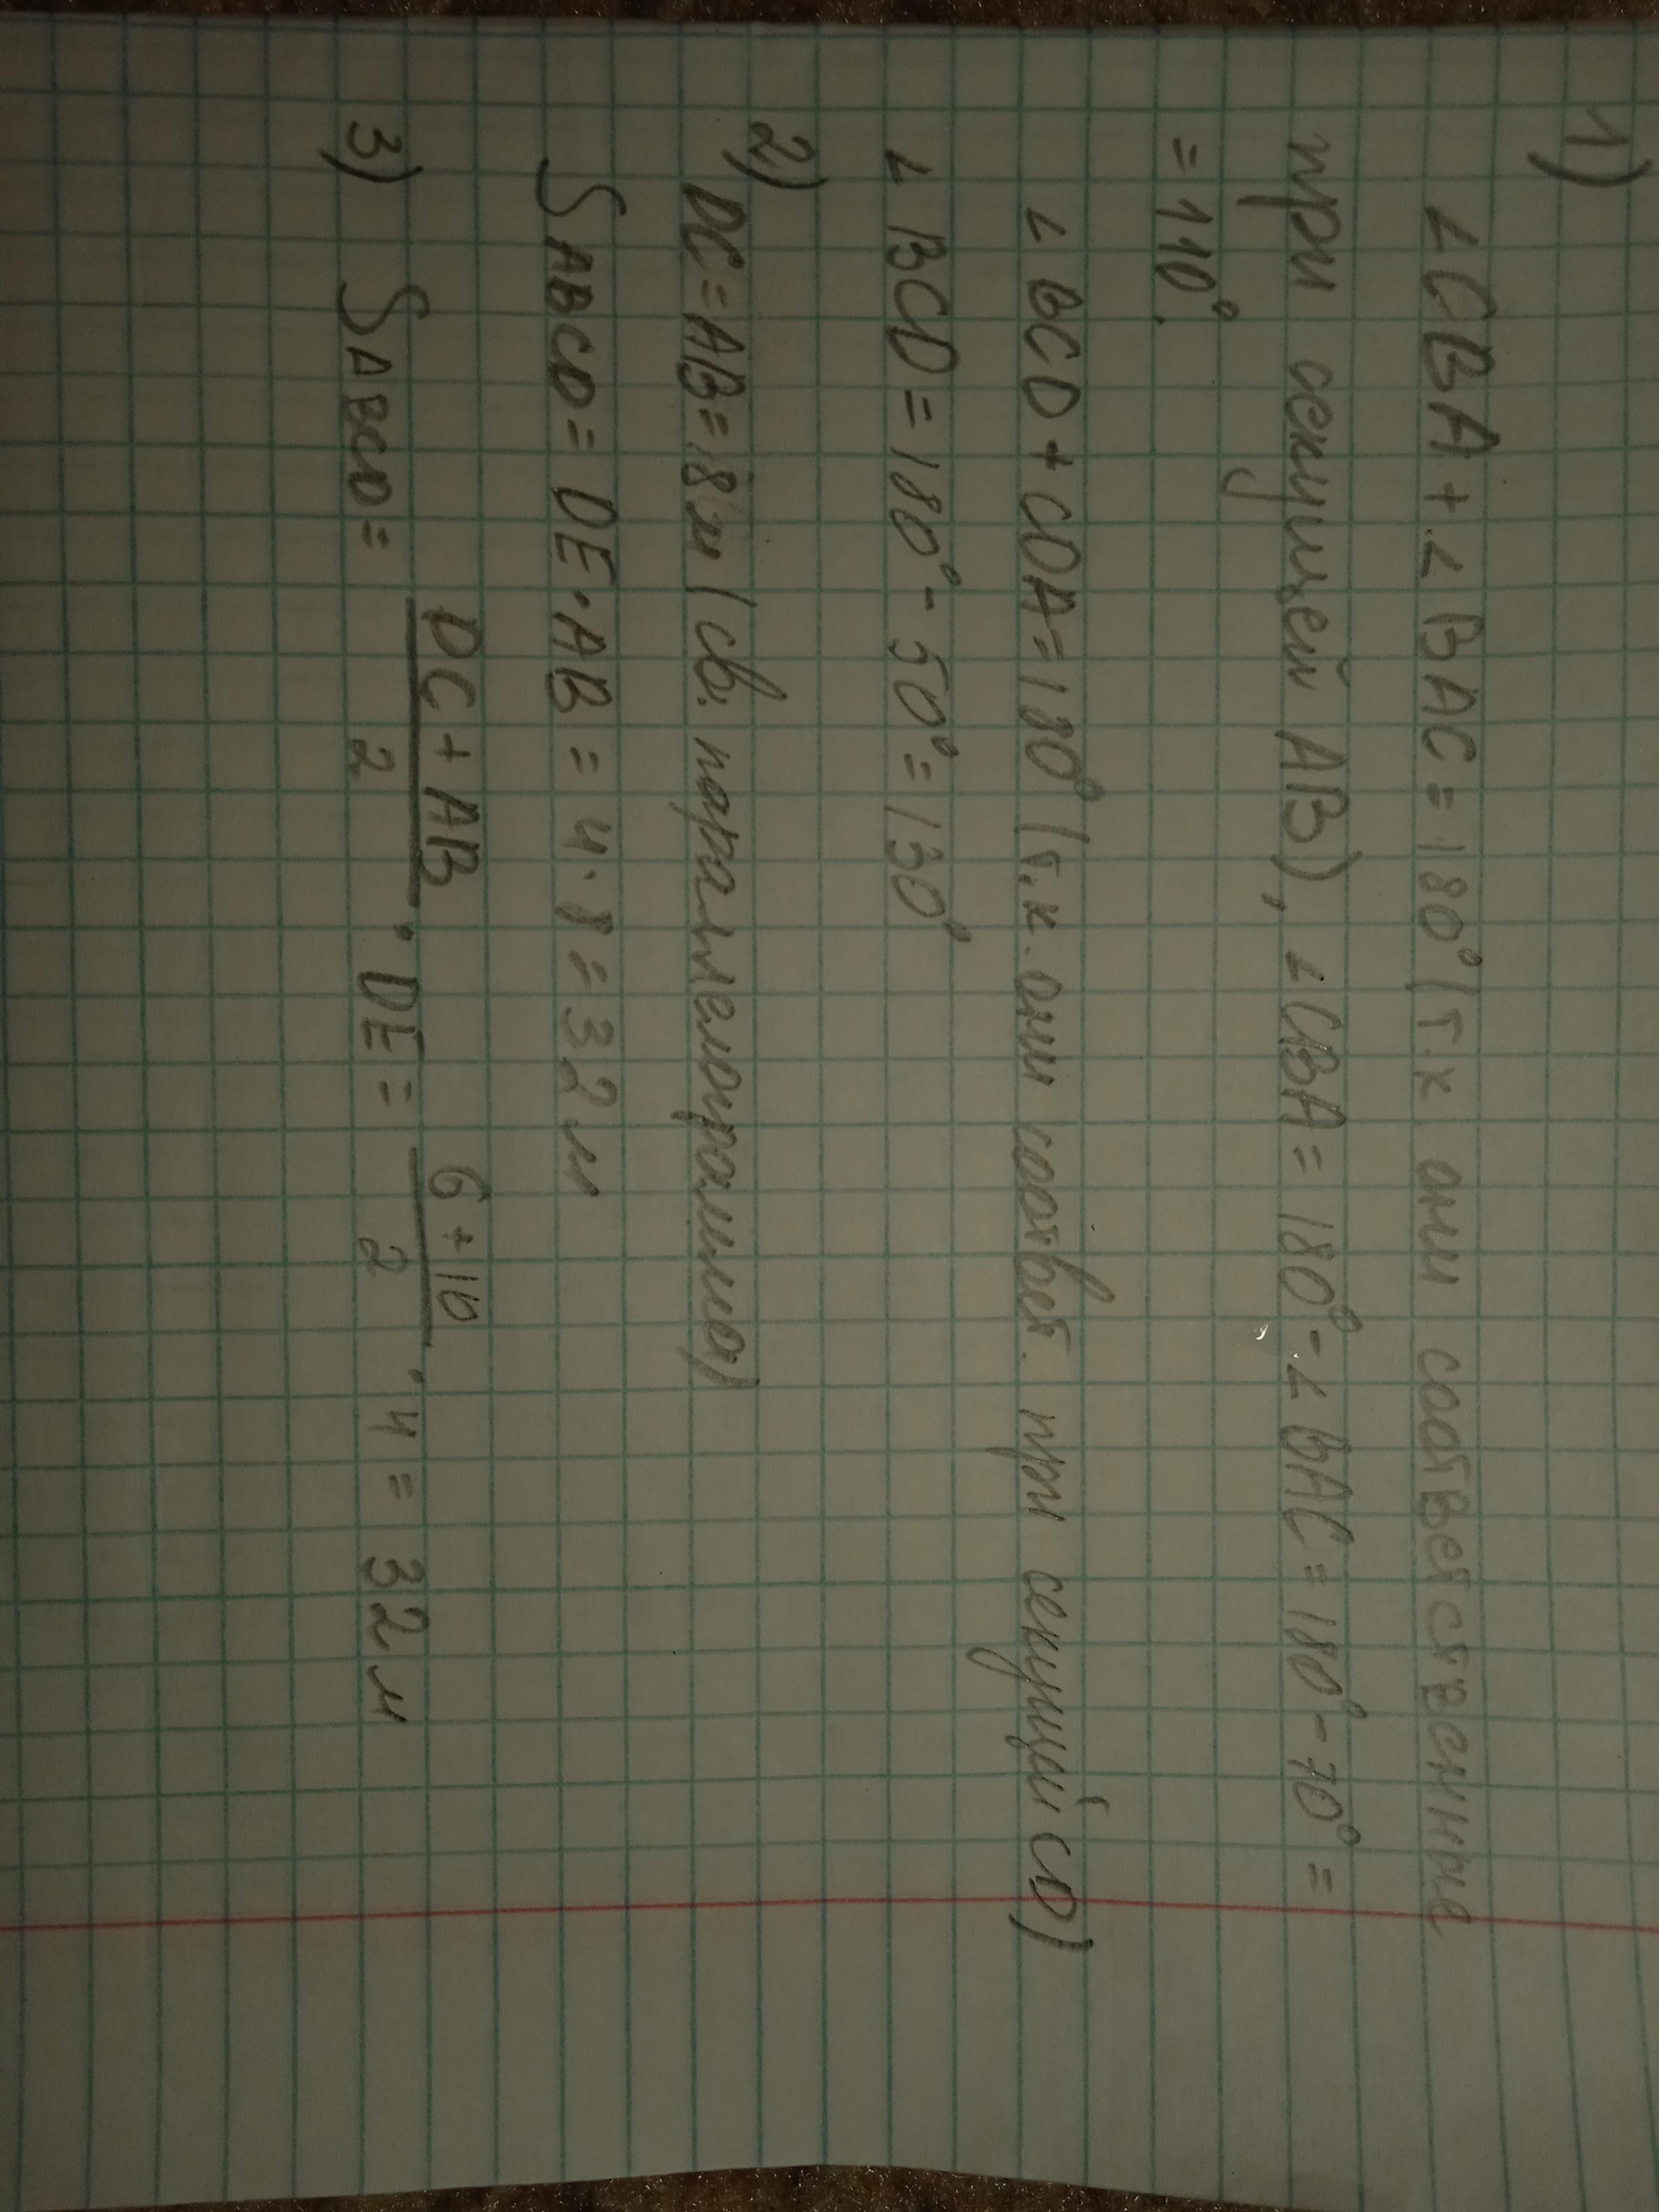 1)
∠CBA + ∠BAC = 180° (т.к они соответственные
при секущей AB), ∠CBA = 180° - ∠BAC = 180° - 70° =
= 110°.
∠BCD + CDA = 180° (т.к. они соответ. при секущий CD)
∠BCD = 180° - 50° = 130°
2)
DC = AB = 8м (св. параллелограмма)
SABCD = DE · AB = 4 · 8 = 32м
3) SABCD = DC + AB / 2 · DE = 6 + 10 / 2 · 4 = 32м